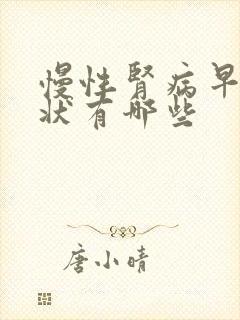 慢性肾病早
状有哪些
唐小晴